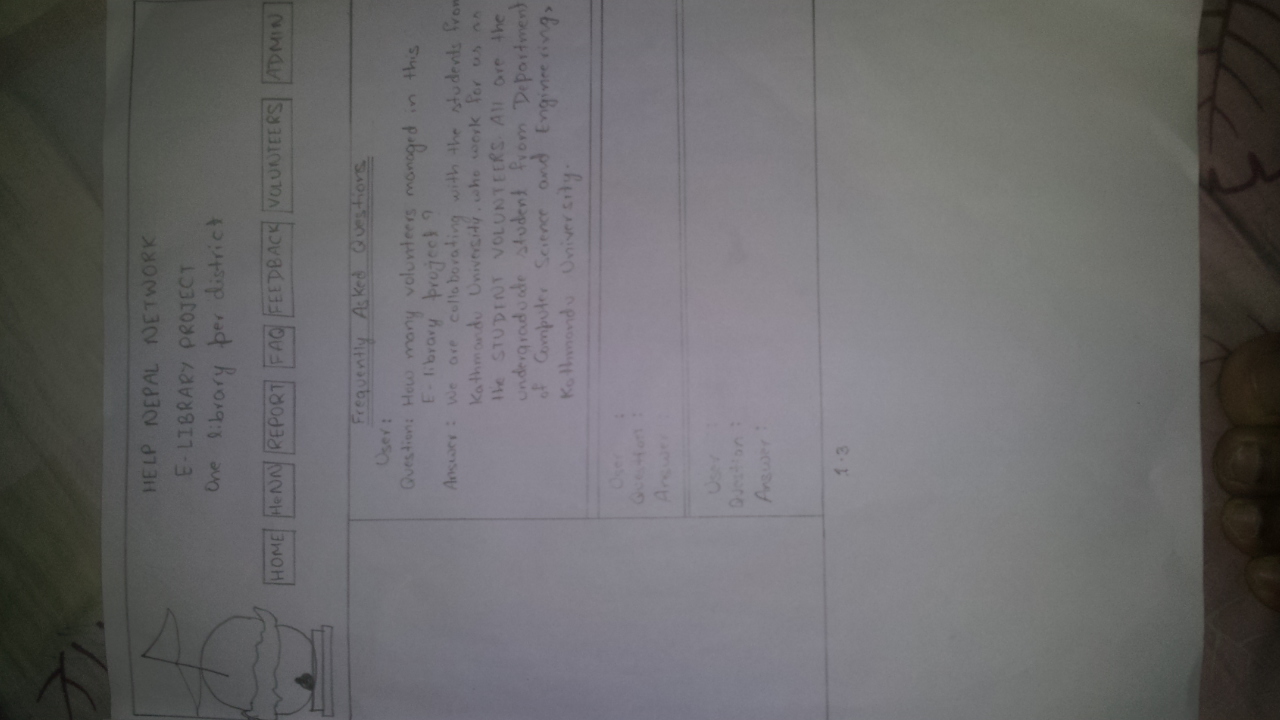 HELP NEPAL NETWORK
E-LIBRARY PROJECT
One library per district
HOME HeNN REPORT FAQ FEEDBACK VOLUNTEERS ADMIN
Frequently Asked Questions
User:
Question: How many volunteers managed in this
E-library project?
Answer: We are collaborating with the students from
Kathmandu University, who work for us as
the STUDENT VOLUNTEERS. All are the
undergraduate student from Department
of Computer Science and Engineering,
Kathmandu University.
User :
Question :
Answer :
User :
Question :
Answer :
1.3